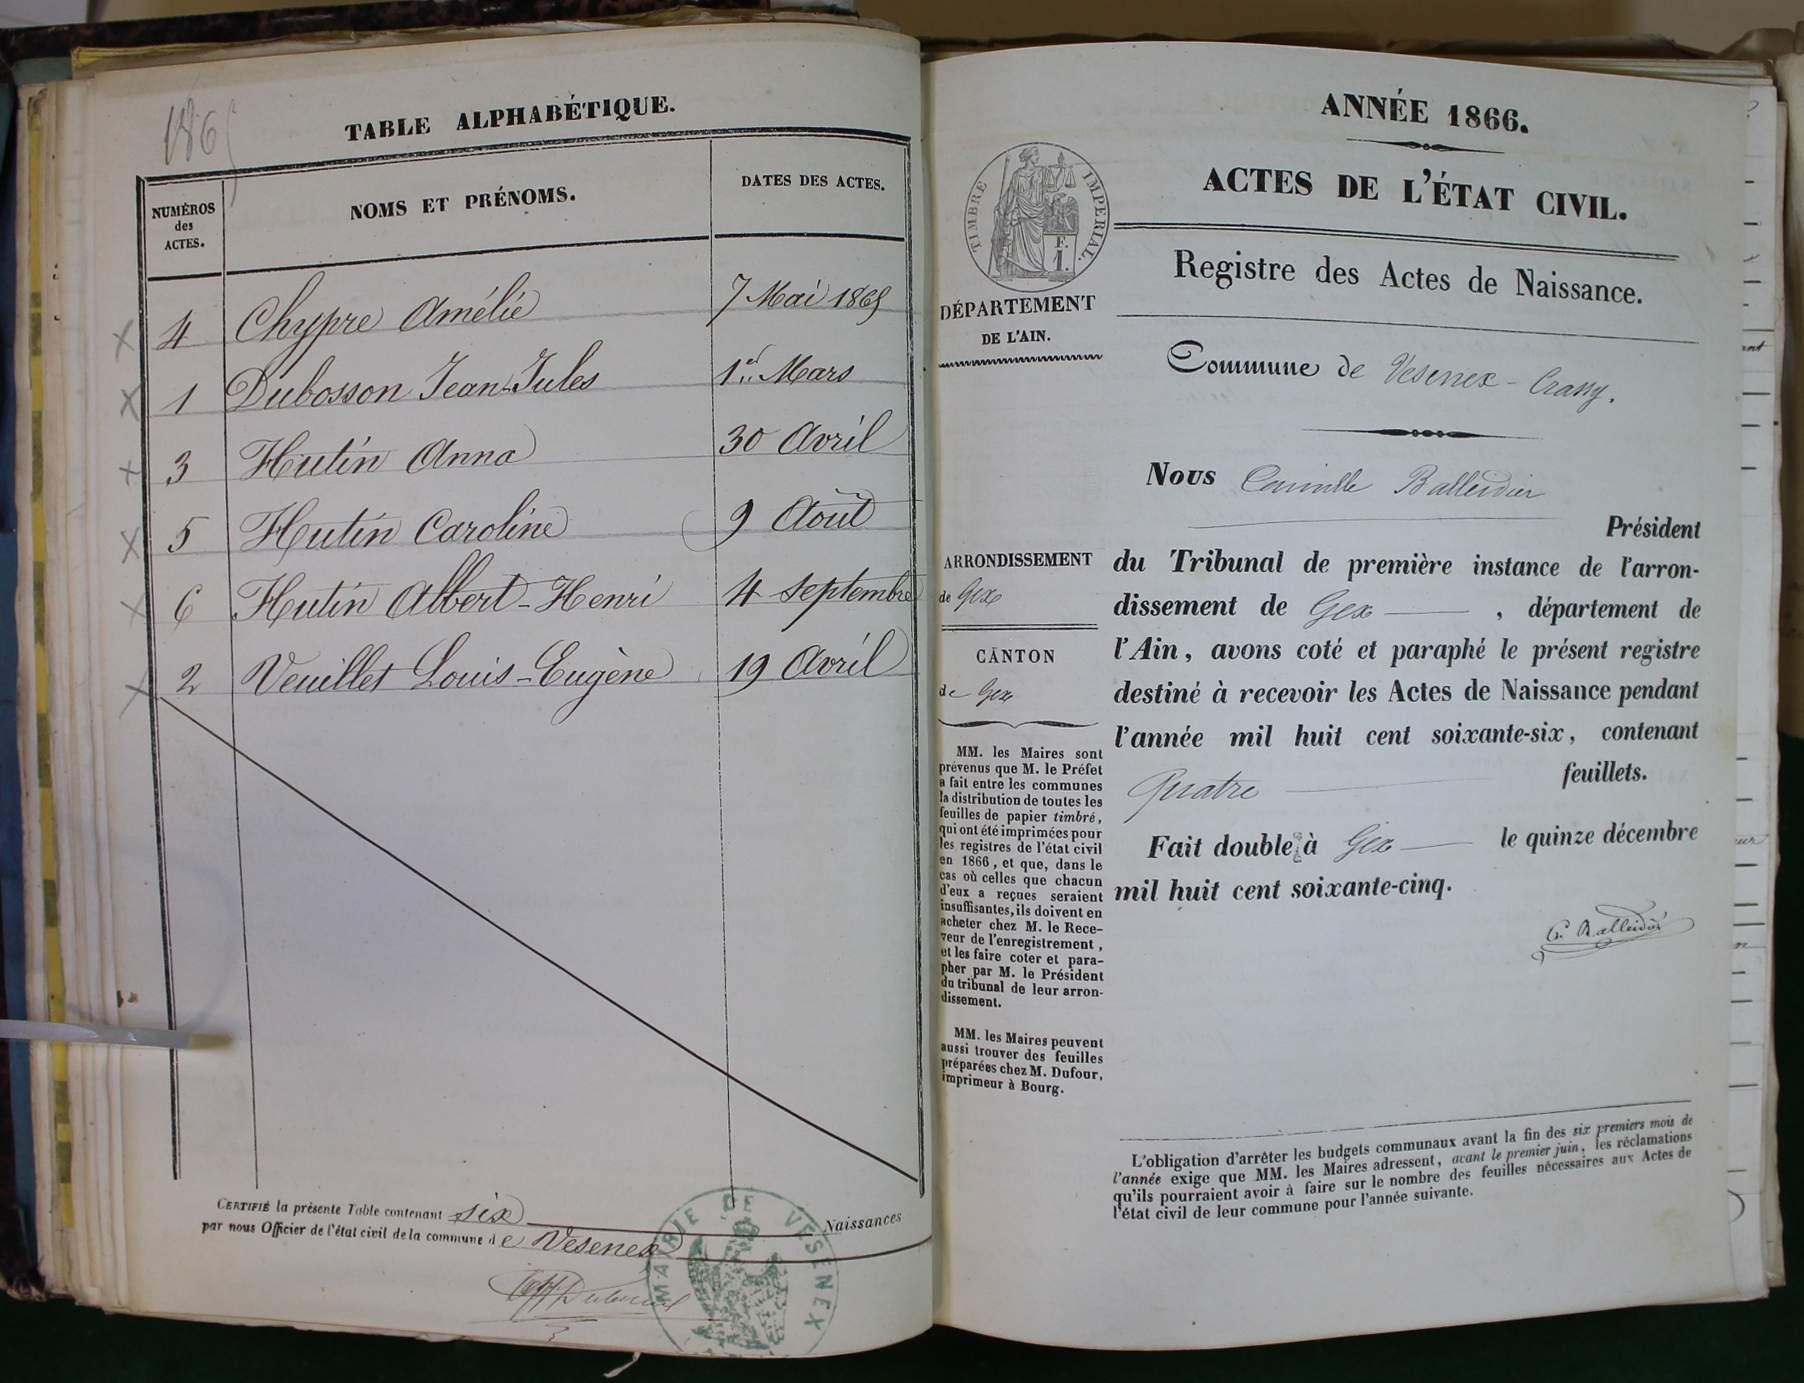 1865
TABLE ALPHABÉTIQUE.
NUMÉROS des ACTES.
NOMS ET PRÉNOMS.
DATES DES ACTES.
4 Chypre Amélie 7 Mai 1865
1 Dubosson Jean-Jules 1er Mars
3 Hutin Anna 30 Avril
5 Hutin Caroline 9 Août
6 Hutin Albert-Henri 4 Septembre
2 Veuillet Louis-Eugène 19 Avril
CERTIFIÉ la présente Table contenant six Naissances
par nous Officier de l'état civil de la commune de Vesenex
MAIRIE DE VESENEX
ANNÉE 1866.
ACTES DE L'ÉTAT CIVIL.
TIMBRE IMPERIAL.
F.
1.
Registre des Actes de Naissance.
DÉPARTEMENT
DE L'AIN.
Commune de Vesenex-Crassy.
Nous Camille Balleidier
Président
ARRONDISSEMENT
de Gex
CANTON
de Gex
du Tribunal de première instance de l'arron-
dissement de Gex, département de
l'Ain, avons coté et paraphé le présent registre
destiné à recevoir les Actes de Naissance pendant
l'année mil huit cent soixante-six, contenant
Quatre feuillets.
Fait double à Gex le quinze décembre
mil huit cent soixante-cinq.
C. Balleidier
MM. les Maires sont
prévenus que M. le Préfet
a fait entre les communes
la distribution de toutes les
feuilles de papier timbré,
qui ont été imprimées pour
les registres de l'état civil
en 1866, et que, dans le
cas où celles que chacun
d'eux a reçues seraient
insuffisantes, ils doivent en
acheter chez M. le Rece-
veur de l'enregistrement,
et les faire coter et para-
pher par M. le Président
du tribunal de leur arron-
dissement.
MM. les Maires peuvent
aussi trouver des feuilles
préparées chez M. Dufour,
imprimeur à Bourg.
L'obligation d'arrêter les budgets communaux avant la fin des six premiers mois de
l'année exige que MM. les Maires adressent, avant le premier juin, les réclamations
qu'ils pourraient avoir à faire sur le nombre des feuilles nécessaires aux Actes de
l'état civil de leur commune pour l'année suivante.